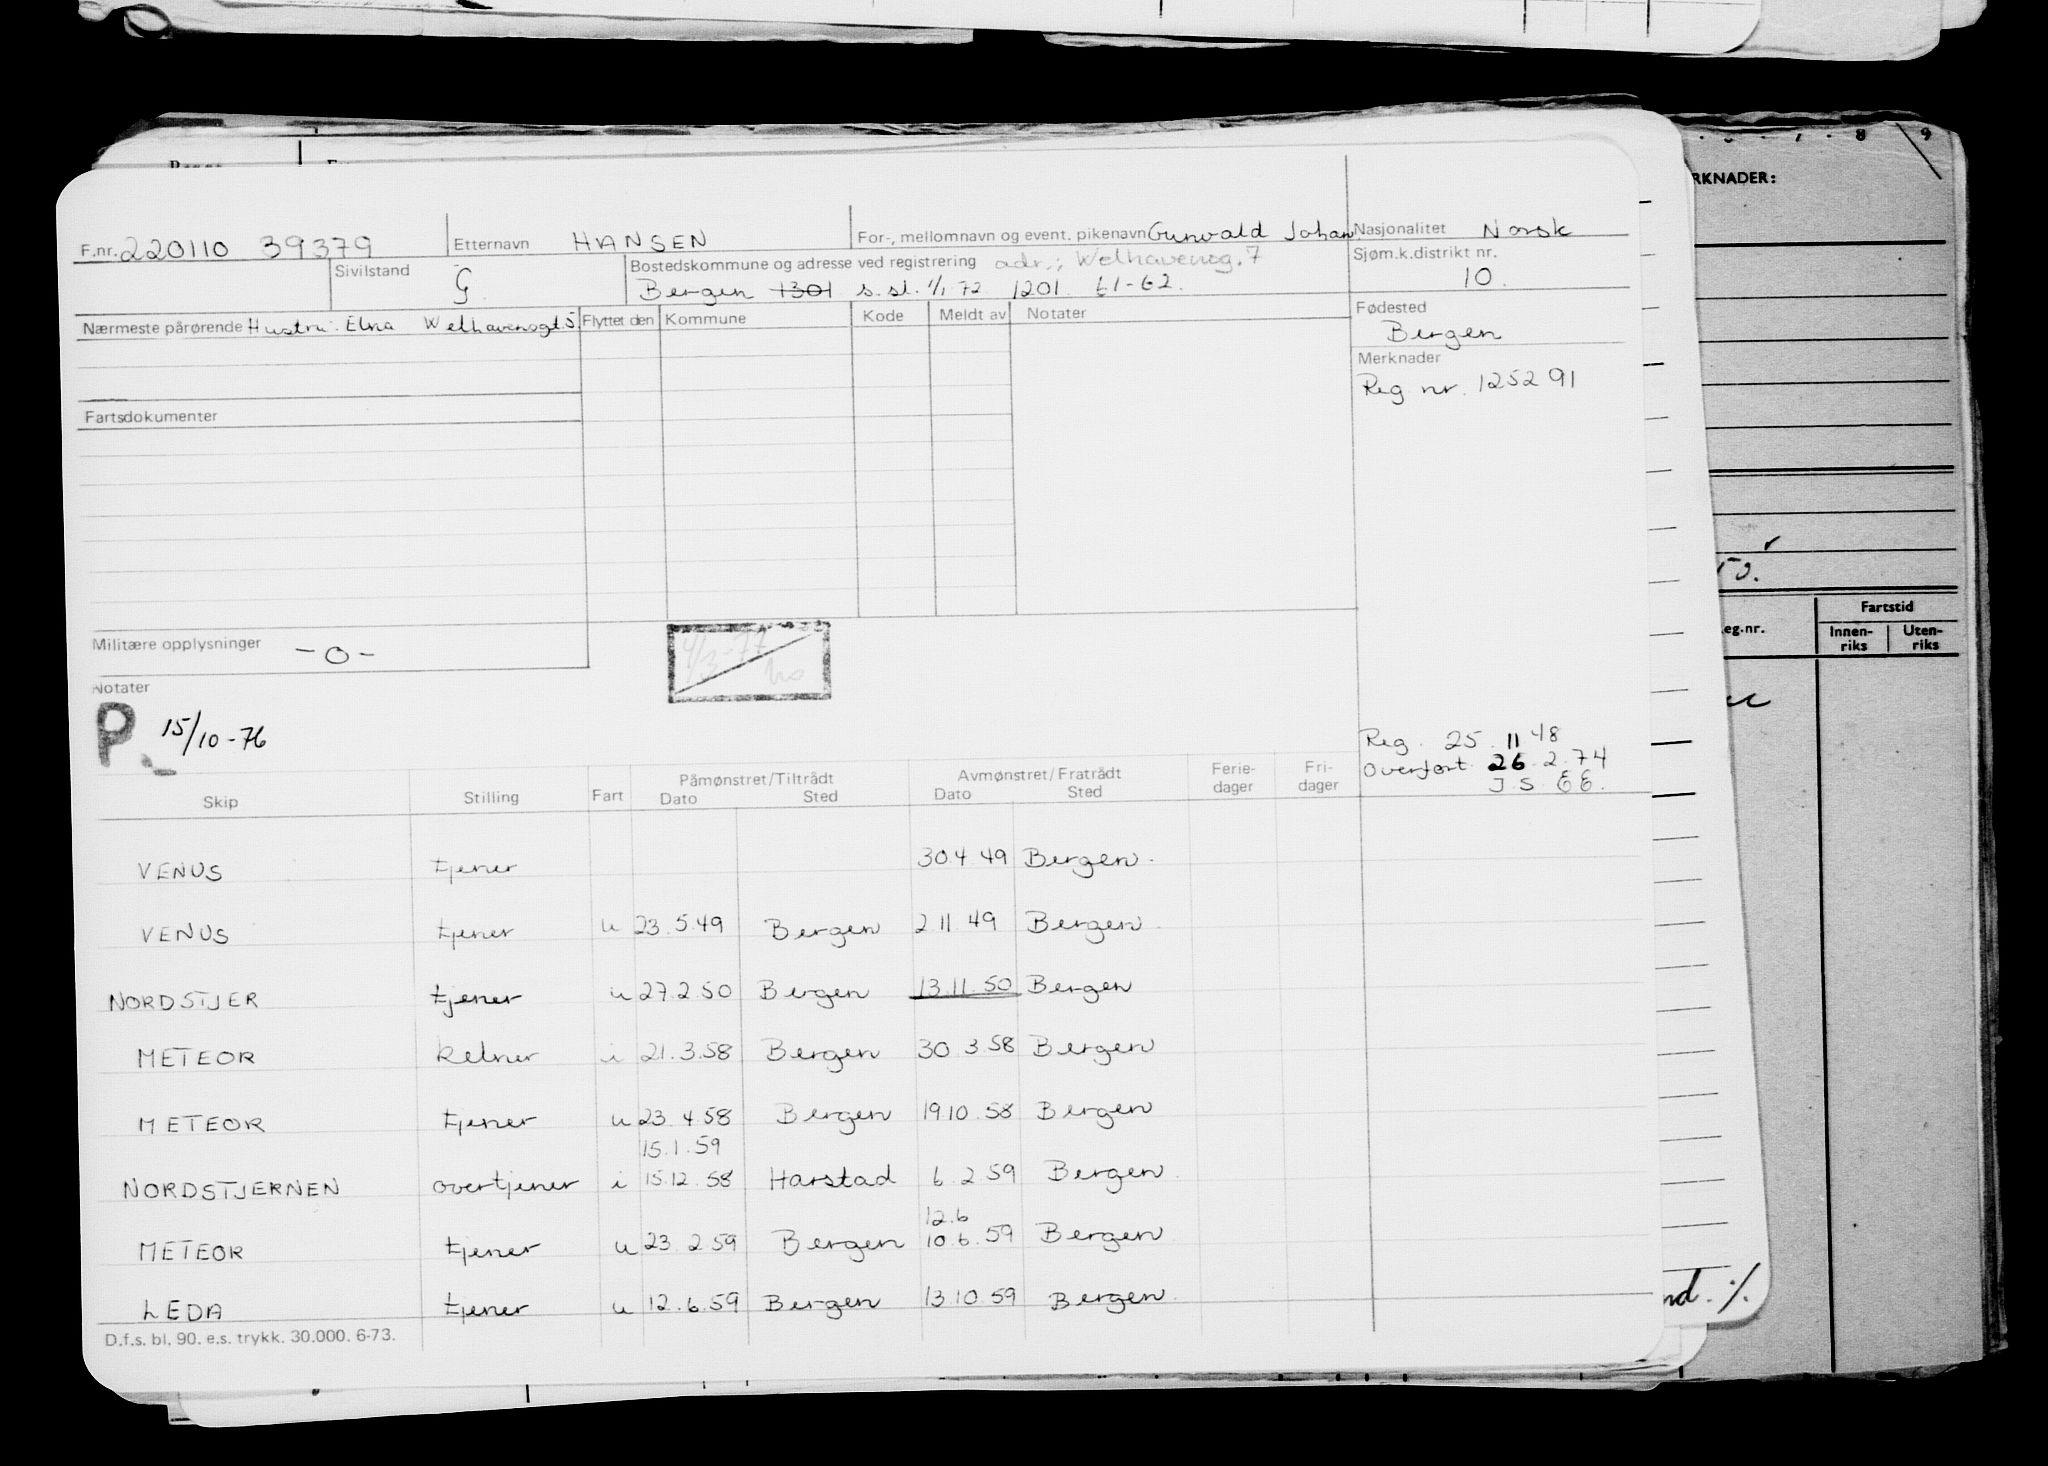 RKNADER:
8 9
F.nr. 220110 39379 Etternavn HANSEN For-, mellomnavn og event. pikenavn Gunvald Johan Nasjonalitet Norsk
Sivilstand G Bostedskommune og adresse ved registrering adr.: Welhavensg. 7 Sjøm.k.distrikt nr.
Bergen 1301 s.st. 1/1 72 1201 61-62. 10.
Nærmeste pårørende Hustru: Elna Welhavensgt. 5 Flyttet den Kommune Kode Meldt av Notater Fødested
Bergen
Merknader
Reg nr. 125291
Fartsdokumenter
Militære opplysninger -0-
4/3-77
Notater
P. 15/10-76
Reg. 25.11 48
Overført 26.2.74
J.S. EE.
Skip Stilling Fart Påmønstret/Tiltrådt Dato Sted Avmønstret/Fratrådt Dato Sted Ferie-dager Fri-dager
VENUS tjener 30.4 49 Bergen.
VENUS tjener u 23.5.49 Bergen 2 11 49 Bergen.
NORDSTJER tjener u 27.2.50 Bergen 13.11.50 Bergen
METEOR kelner i 21.3.58 Bergen 30 3 58 Bergen
METEOR tjener u 23.4.58 Bergen 19.10.58 Bergen
15.1.59
NORDSTJERNEN overtjener i 15.12.58 Harstad 6.2.59 Bergen.
12.6
METEOR tjener u 23.2.59 Bergen 10.6.59 Bergen
LEDA tjener u 12.6.59 Bergen 13.10.59 Bergen.
D.f.s. bl. 90. e.s. trykk. 30.000. 6-73.
eg.nr. Fartstid
Innen-riks Uten-riks
nd. ./.